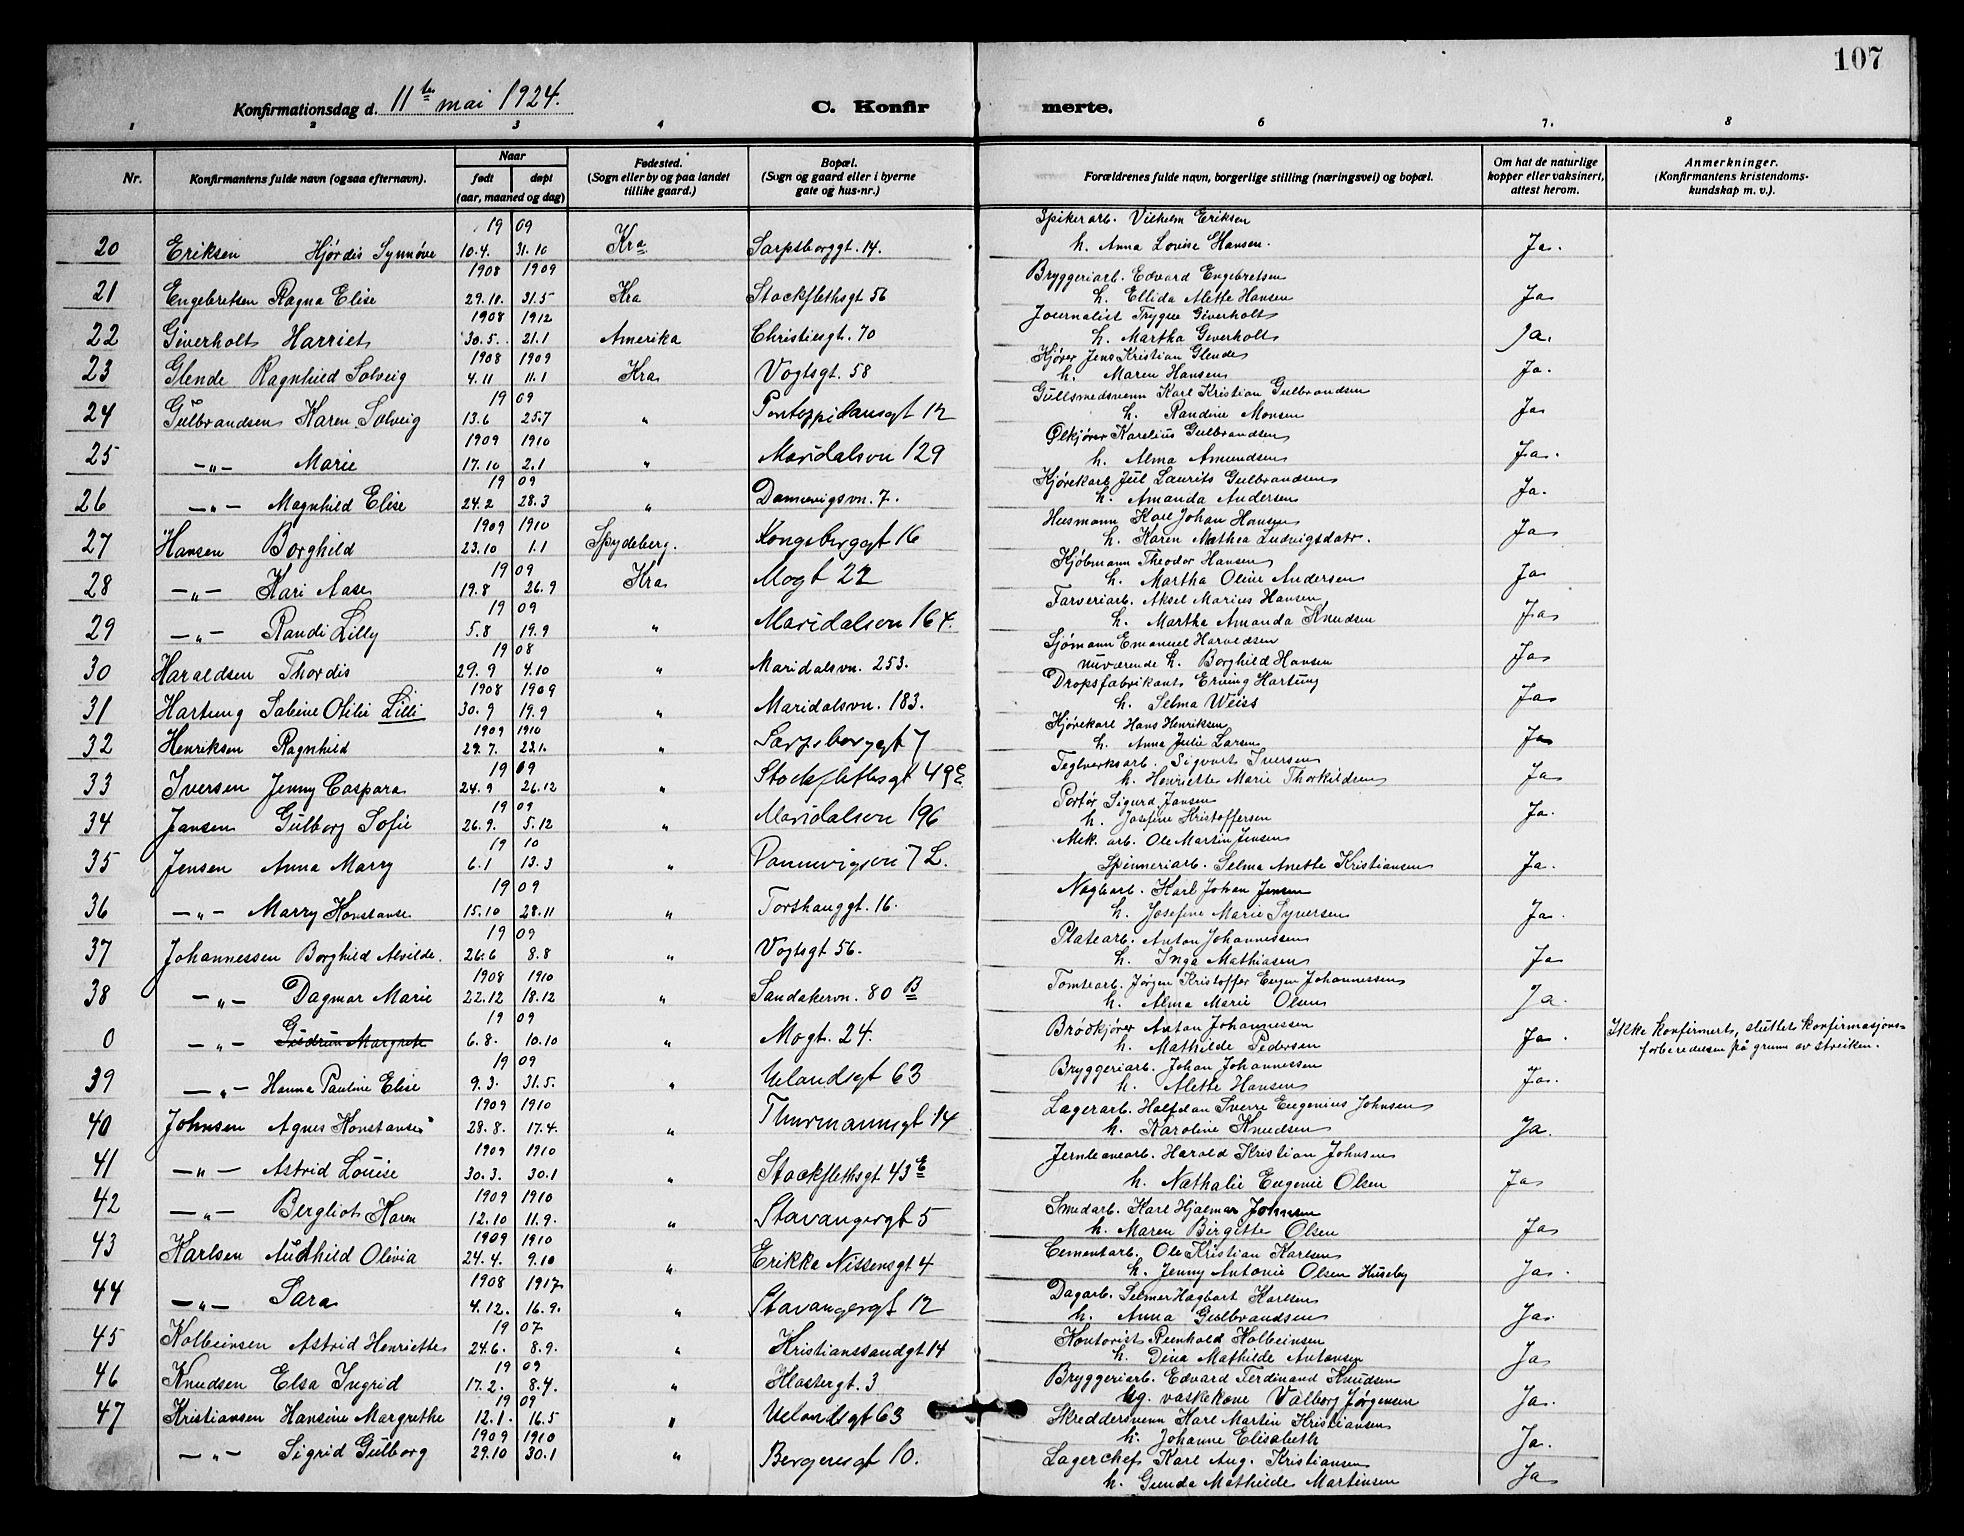 107
Konfirmationsdag d. 11te mai 1924. C. Konfir merte.
1 2 3 4 6 7. 8
Nr. Konfirmantens fulde navn (ogsaa efternavn). Naar født døpt (aar, maaned og dag) Fødested. (Sogn eller by og paa landet tillike gaard.) Bopæl. (Sogn og gaard eller i byerne gate og hus-nr.) Forældrenes fulde navn, borgerlige stilling (næringsvei) og bopæl. Om hat de naturlige kopper eller vaksinert, attest herom. Anmerkninger. (Konfirmantens kristendoms-kundskap m. v.).
19 09 Spikerarb. Vilhelm Eriksen
20 Eriksen Hjørdis Synnøve 10.4. 31.10 Kra Sarpsborggt. 14. h. Anna Lovise Hansen. Ja.
1908 1909 Bryggeriarb. Edvard Engebretsen
21 Engebretsen Ragna Elise 29.10. 31.5 Kra Stockflethsgt 56 h. Ellida Alette Hansen Ja
1908 1912 Journalist Trygve Giverholt
22 Giverholt Harriet 30.5. 21.1 Amerika Christiesgt. 70 h. Martha Giverholt Ja.
1908 1909 Kjører Jens Kristian Glende
23 Glende Ragnhild Solveig 4.11 11.1 Kra Vogtsgt. 58 h. Maren Hansen Ja.
19 09 Gullsmedsvenn Karl Kristian Gulbrandsen
24 Gulbrandsen Karen Solveig 13.6 25.7 " Pontoppidansgt 12 h. Randine Monsen Ja
1909 1910 Ølkjører Karelius Gulbrandsen
25 -"- Marie 17.10 2.1 " Maridalsvn 129 h. Alma Amundsen Ja.
19 09 Kjørekarl Jul Laurits Gulbrandsen
26 -"- Magnhild Elise 24.2 28.3 " Dannevigsvn. 7. h. Amanda Andersen Ja.
1909 1910 Husmann Karl Johan Hansen
27 Hansen Borghild 23.10 1.1 Spydeberg. Kongsberggt 16 h. Karen Mathea Ludvigsdatr. Ja
19 09 Kjøbmann Theodor Hansen
28 -"- Kari Aase 19.8 26.9 Kra Mogt 22 h. Martha Oline Andersen Ja
19 09 Farveriarb. Aksel Marius Hansen
29 -"- Randi Lilly 5.8 19.9 " Maridalsvn 164. h. Martha Amanda Knudsen Ja
19 08 Sjømann Emanuel Haraldsen
30 Haraldsen Thordis 29.9 4.10 " Maridalsvn. 253. nuværende h. Borghild Hansen Ja
1908 1909 Dropsfabrikant Erving Hartung
31 Hartung Sabine Otilie Lilli 30.9 19.9 " Maridalsvn. 183. h. Selma Weiss Ja
1909 1910 Kjørekarl Hans Henriksen
32 Henriksen Ragnhild 29.7. 23.1. " Sarpsborggt 7 h. Anna Julie Larsen Ja
19 09 Teglverksarb. Sigvart Iversen
33 Iversen Jenny Caspara 24.9 26.12 " Stockflethsgt 49 h. Henriette Marie Thorkildsen Ja
19 09 Portør Sigurd Jansen
34 Jansen Gulborg Sofie 26.9. 5.12 " Maridalsvn 196 h. Josefine Kristoffersen Ja.
19 10 Mek. arb. Ole Martin Jensen
35 Jensen Anna Marry 6.1 13.3 " Dannevigsvn 7 L. Spinneriarb. Selma Anette Kristiansen Ja.
19 09 Nagbarb. Karl Johan Jensen
36 -"- Marry Konstanse 15.10 28.11 " Torshauggt. 16. h. Josefine Marie Syversen Ja.
19 09 Platearb. Anton Johannessen
37 Johannessen Borghild Alvilde. 26.6 8.8 " Vogtsgt 56. h. Inga Mathiasen Ja
1908 1910 Tomtearb. Jørgen Kristoffer Eugen Johannessen
38 -"- Dagmar Marie 22.12 18.12 " Sandakervn. 80 B h. Alma Marie Olsen Ja.
19 09 Brødkjører Anton Johannessen
0 -"- Gudrun Margrete 6.8. 10.10 " Mogt. 24. h. Mathilde Pedersen Ja. Ikke konfirmert, sluttet konfirmasjons-forberedelsen på grunn av streiken.
19 09 Bryggeriarb. Johan Johannessen
39 -"- Hanna Pauline Elise 9.3. 31.5. " Uelandsgt 63 h. Alette Hansen Ja.
1909 1910 Lagerarb. Halfdan Sverre Eugenius Johnsen
40 Johnsen Agnes Konstanse 28.8. 17.4. " Thurmannsgt 14 h. Karoline Knudsen Ja.
1909 1910 Jernlevearb. Harald Kristian Johnsen
41 -"- Astrid Louise 30.3. 30.1 " Stockflethsgt 43 E h. Nathalie Eugenie Olsen Ja
1909 1910 Smedarb. Karl Hjalmar Johnsen
42 -"- Bergliot Karen 12.10 11.9. " Stavangergt 5 h. Maren Birgitte Olsen Ja
1909 1910 Cementarb. Ole Kristian Karlsen
43 Karlsen Audhild Olivia 24.4. 9.10 " Erikke Nissensgt 4 h. Jenny Antonie Olsen Huseby Ja.
1908 1917 Dagarb. Selmer Hagbart Karlsen
44 -"- Sara 4.12. 16.9. " Stavangergt 12 h. Anna Gulbrandsen Ja.
19 07 Kontorist Reinhold Kolbeinsen
45 Kolbeinsen Astrid Henriette 24.6. 8.9. " Kristianssandgt 14 h. Dina Mathilde Antonsen Ja
19 09 Bryggeriarb. Edvard Ferdinand Knudsen
46 Knudsen Elsa Ingrid 17.2. 8.4. " Klostergt. 3 ug. vaskekone Valborg Jørgensen Ja.
19 09 Skreddersvenn Karl Martin Kristiansen
47 Kristiansen Hansine Margrethe 12.1. 16.5 " Uelandsgt 63 h. Johanne Elisabeth Ja.
1909 1910 Lagerchef Karl Aug. Kristiansen
-"- Sigrid Gulborg 29.10 30.1 " Bergensgt 10. h. Gunda Mathilde Martinsen Ja